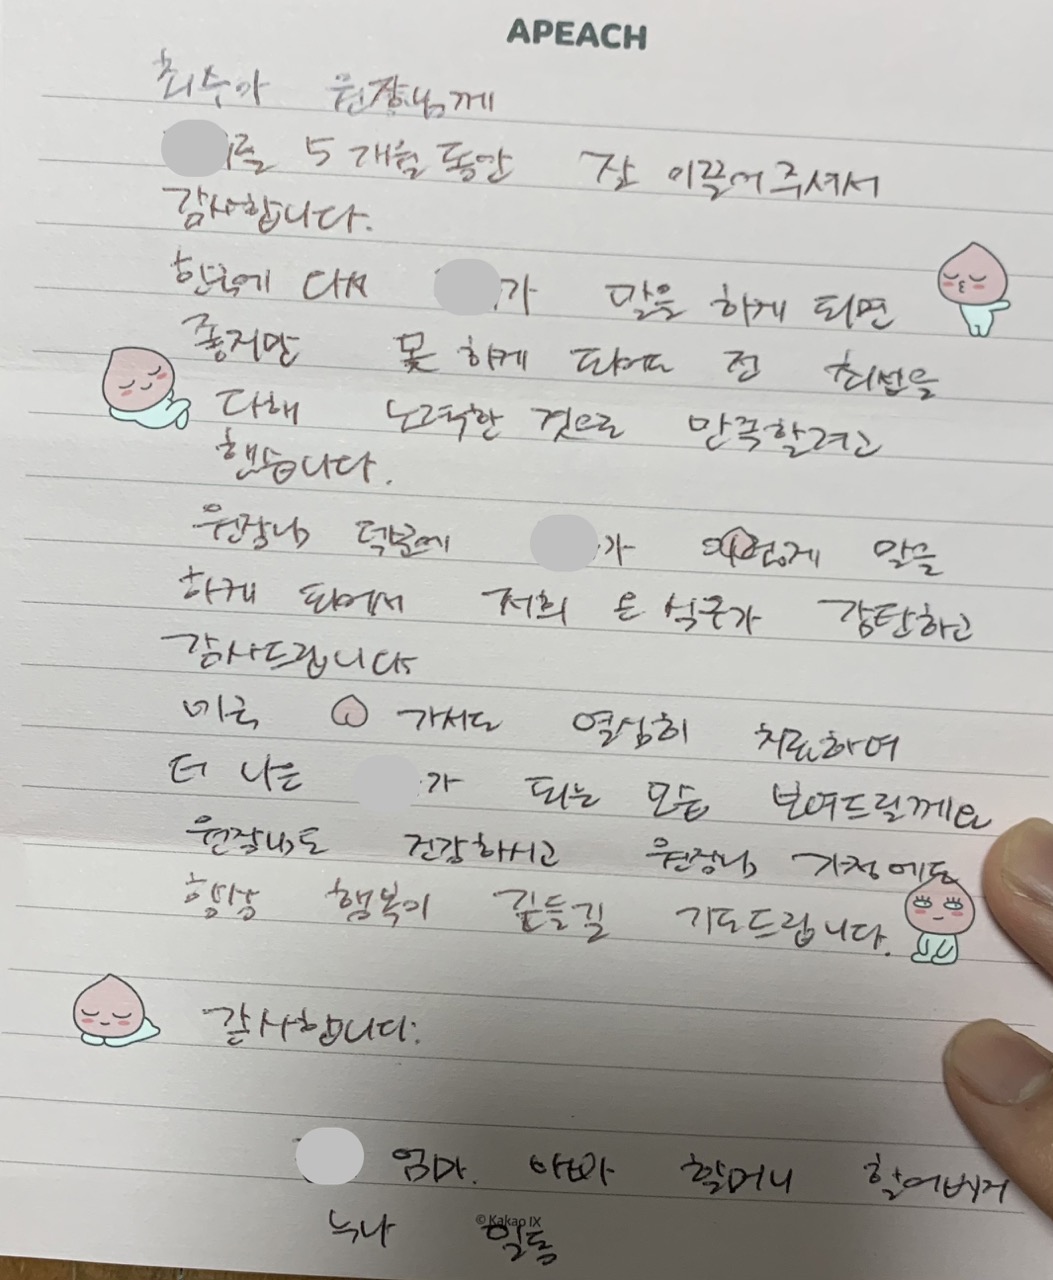 APEACH
최수아 원장님께
를 5개월 동안 잘 이끌어주셔서
감사합니다.
한국에 다시 가 말을 하게 되면
좋지만 못 하게 되어도 전 최선을
다해 노력한 것으로 만족할려고
했습니다.
원장님 덕분에 가 어렵게 말을
하게 되어서 저희 온 식구가 감탄하고
감사드립니다
미국 가서도 열심히 치료하여
더 나은 가 되는 모습 보여드릴께요
원장님도 건강하시고 원장님 가정에도
항상 행복이 깃들길 기도드립니다.
감사합니다.
엄마. 아빠 할머니 할아버지
누나 일동
© Kakao IX